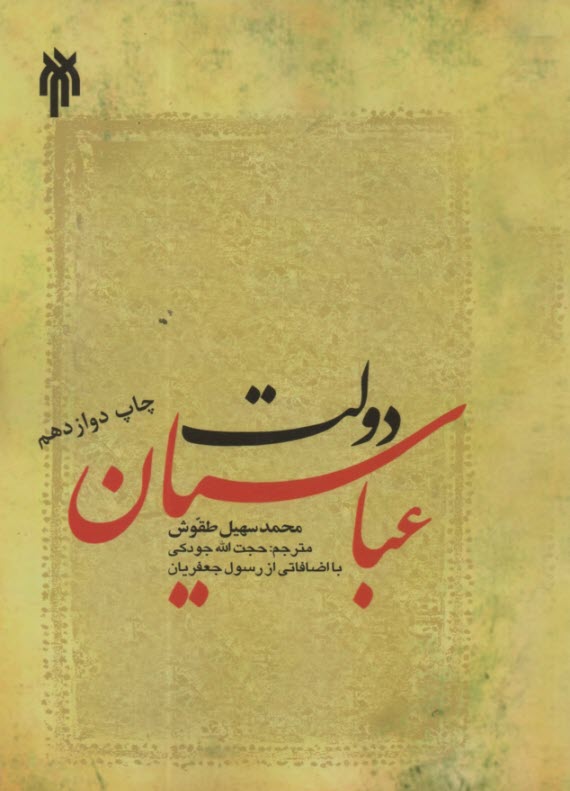 دولت
عباسیان
چاپ دوازدهم
محمد سهیل طقّوش
مترجم: حجت الله جودکی
با اضافاتی از رسول جعفریان